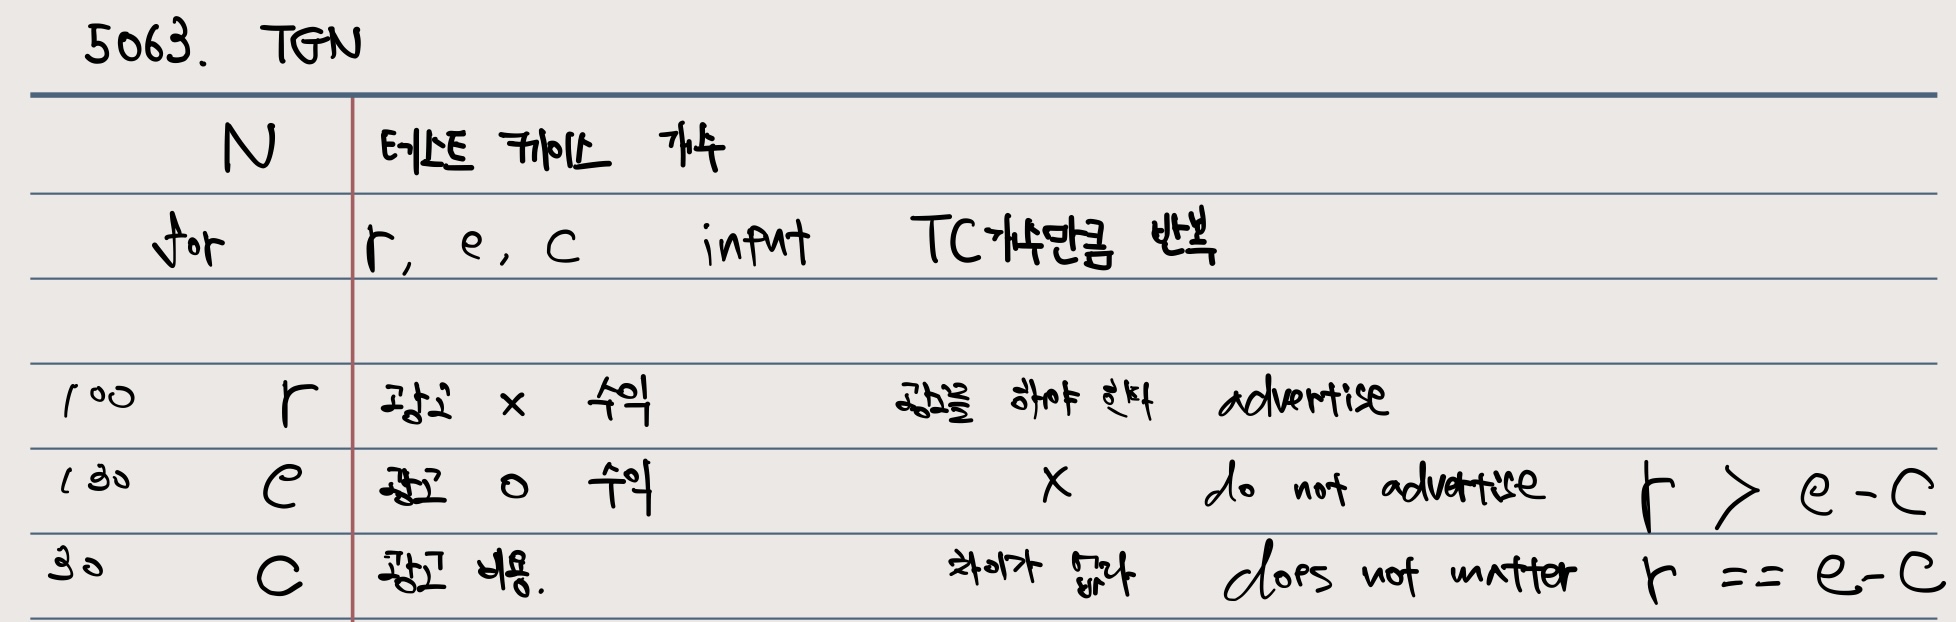 5063. TGN
N 테스트 케이스 개수
for r, e, c input TC개수만큼 반복
100 r 광고 x 수익 광고를 해야 한다 advertise
130 e 광고 o 수익 x do not advertise r > e-c
30 c 광고 비용. 차이가 없다 does not matter r == e-c